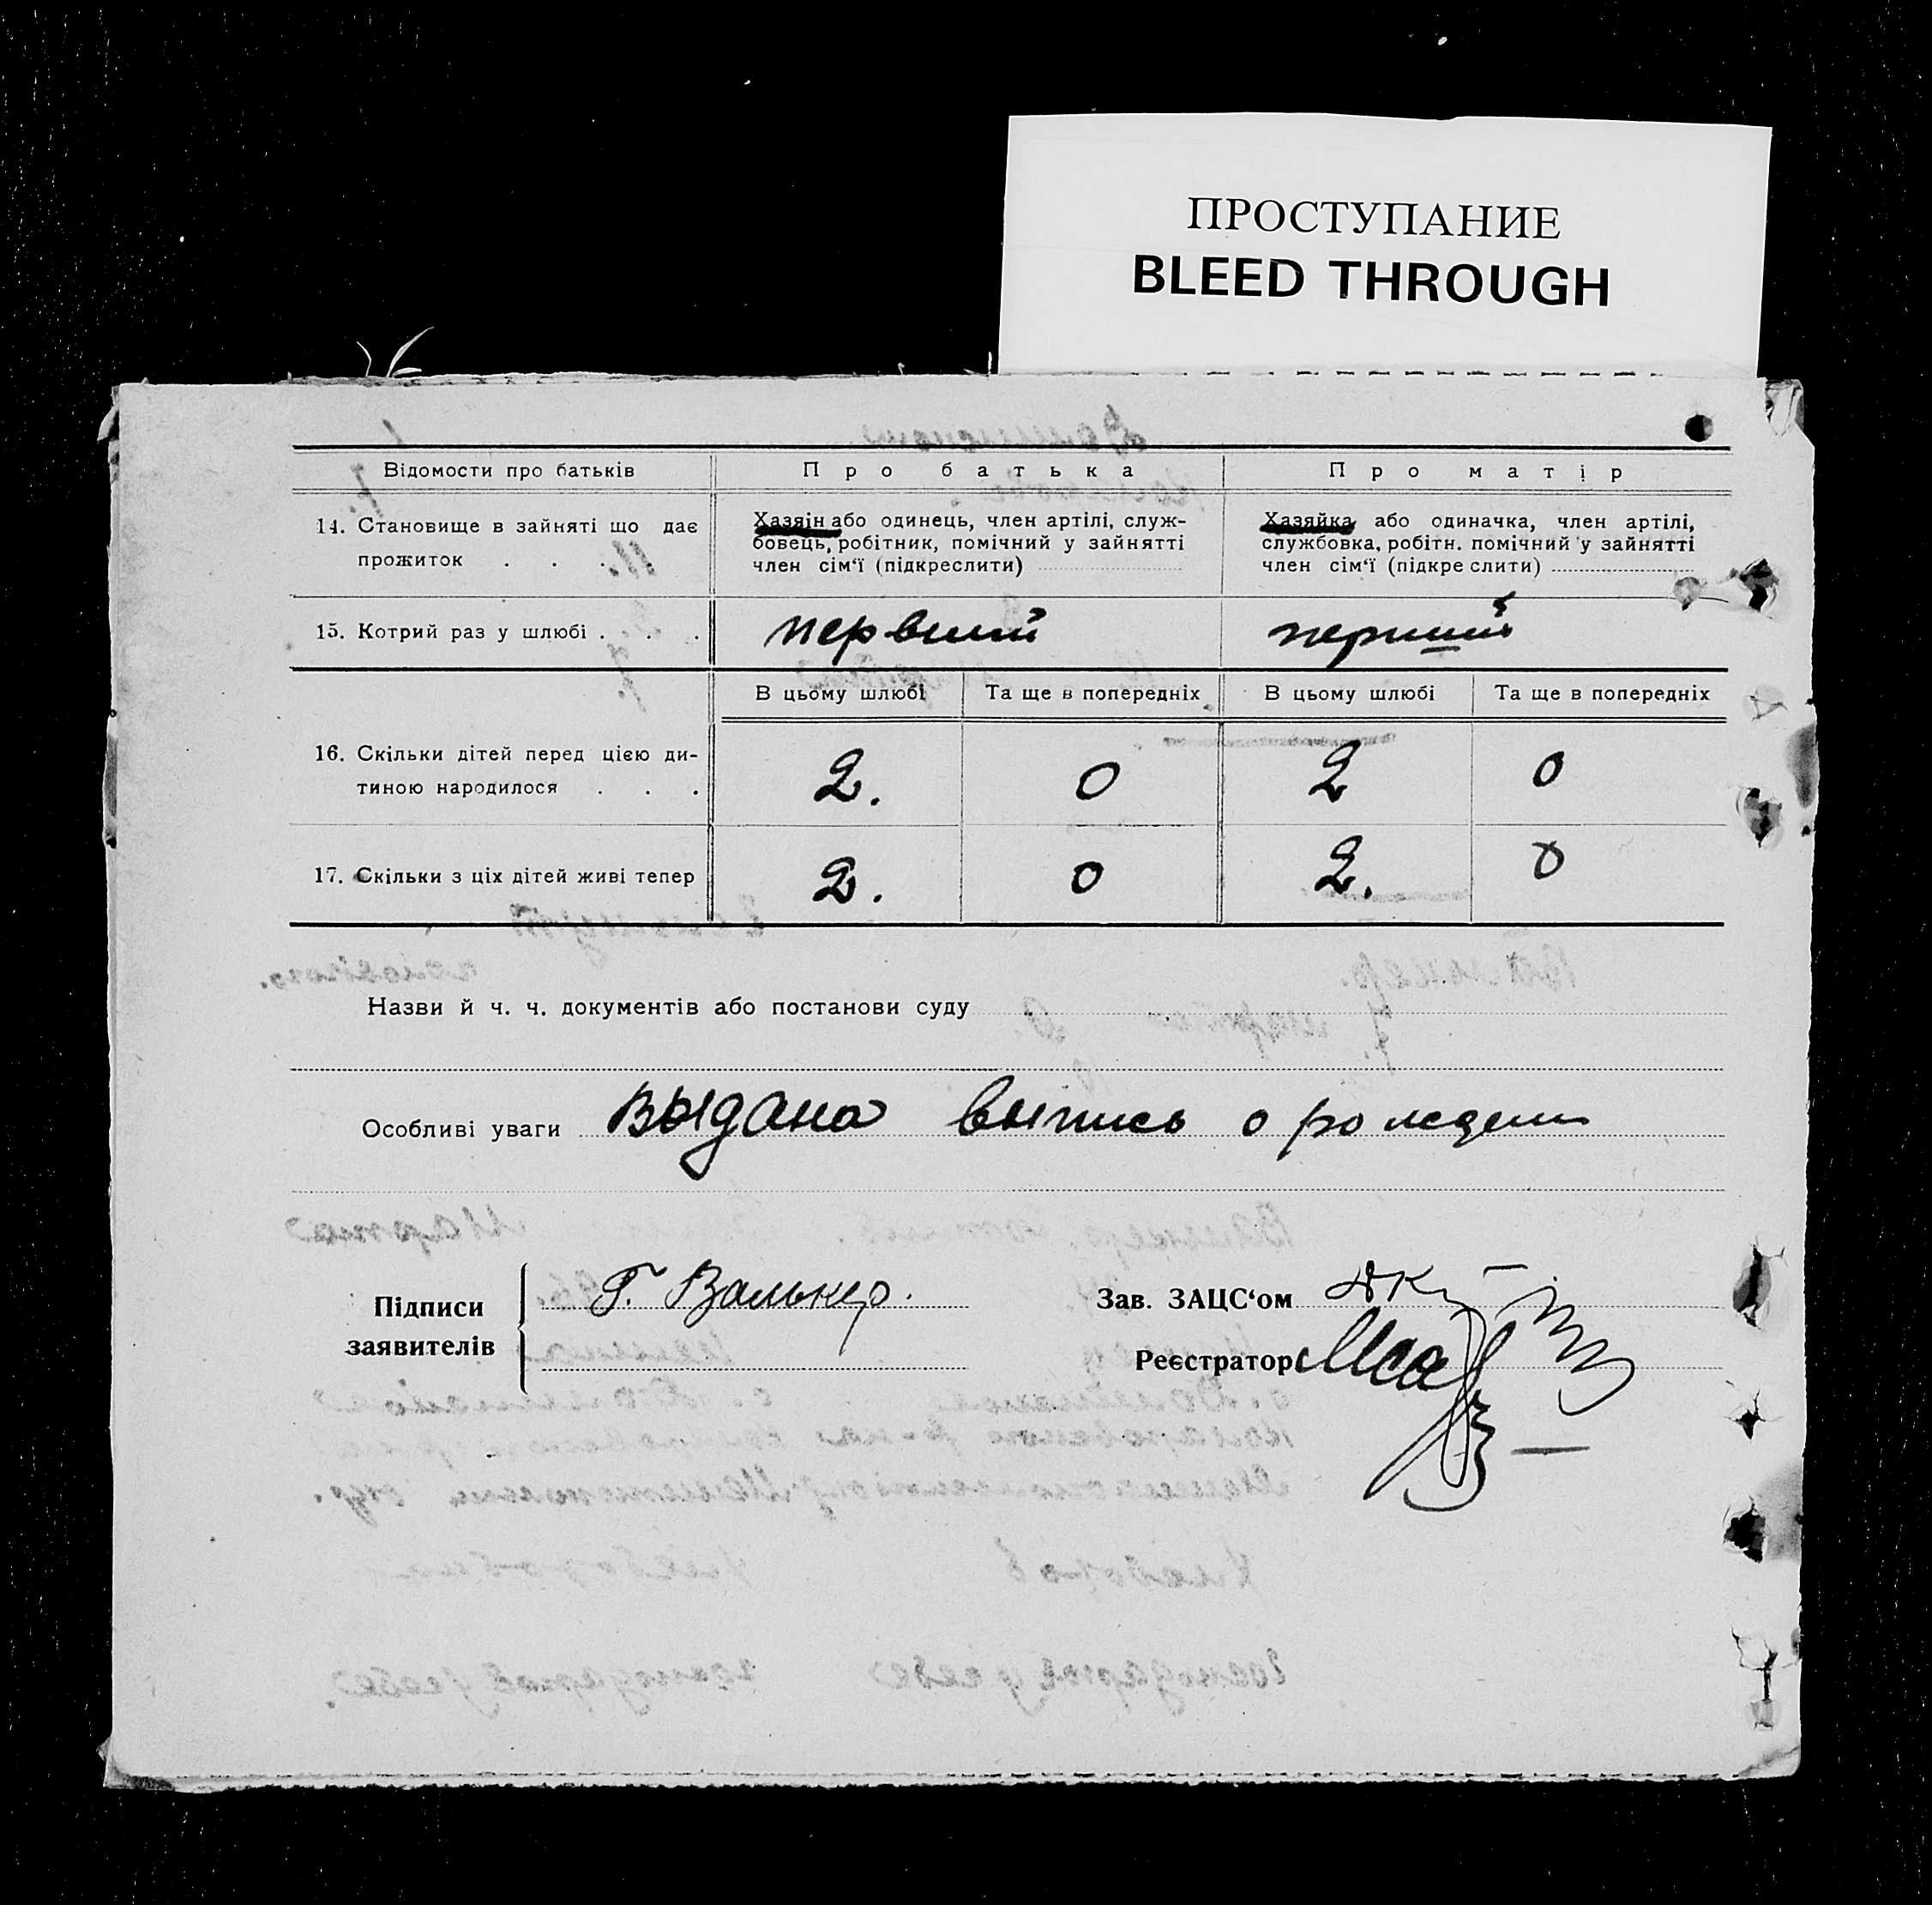 ПРОСТУПАНИЕ
BLEED THROUGH
Відомости про батьків Про батька Про матір
14. Становище в зайняті що дає прожиток . . . .
Хазяін або одинець, член артілі, служ-
бовець, робітник, помічний у зайнятті
член сім‘ї (підкреслити)
Хазяйка або одиначка, член артілі,
службовка, робітн. помічний у зайнятті
член сім‘ї (підкреслити)
15. Котрий раз у шлюбі . . . первший перший
В цьому шлюбі Та ще в попередніх В цьому шлюбі Та ще в попередніх
16. Скільки дітей перед цією ди-
тиною народилося . . . 2. 0 2 0
17. Скільки з ціх дітей живі тепер 2. 0 2. 0
Назви й ч. ч. документів або постанови суду
Особливі уваги Выдана выпись о рождении
Підписи
заявителів
Г. Валькер.
Зав. ЗАЦС‘ом
Реєстратор